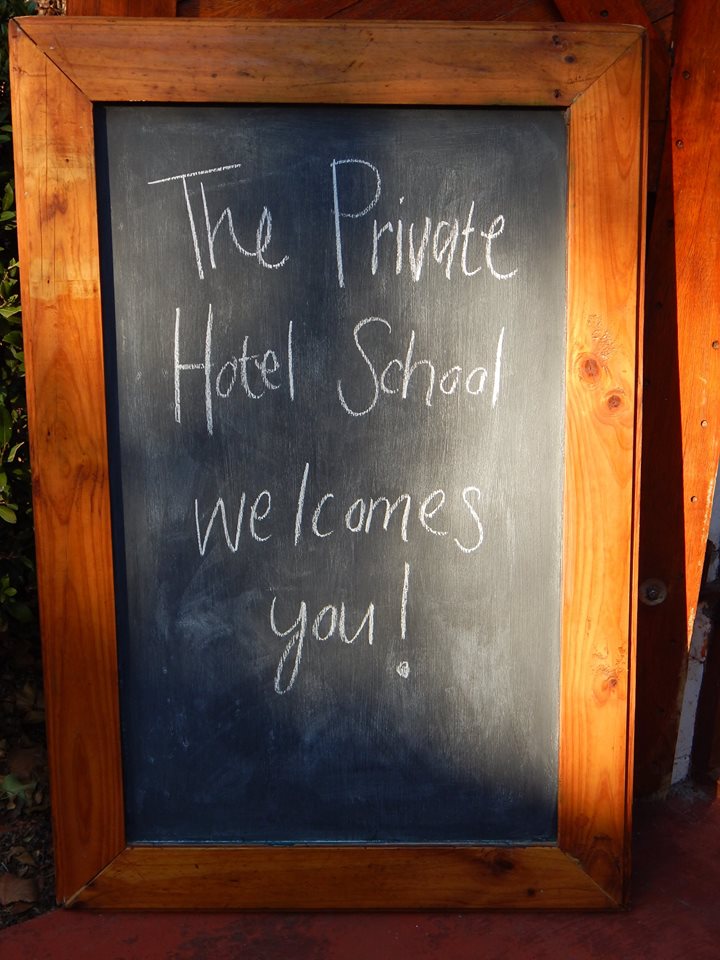 The Private
Hotel School
welcomes
you!